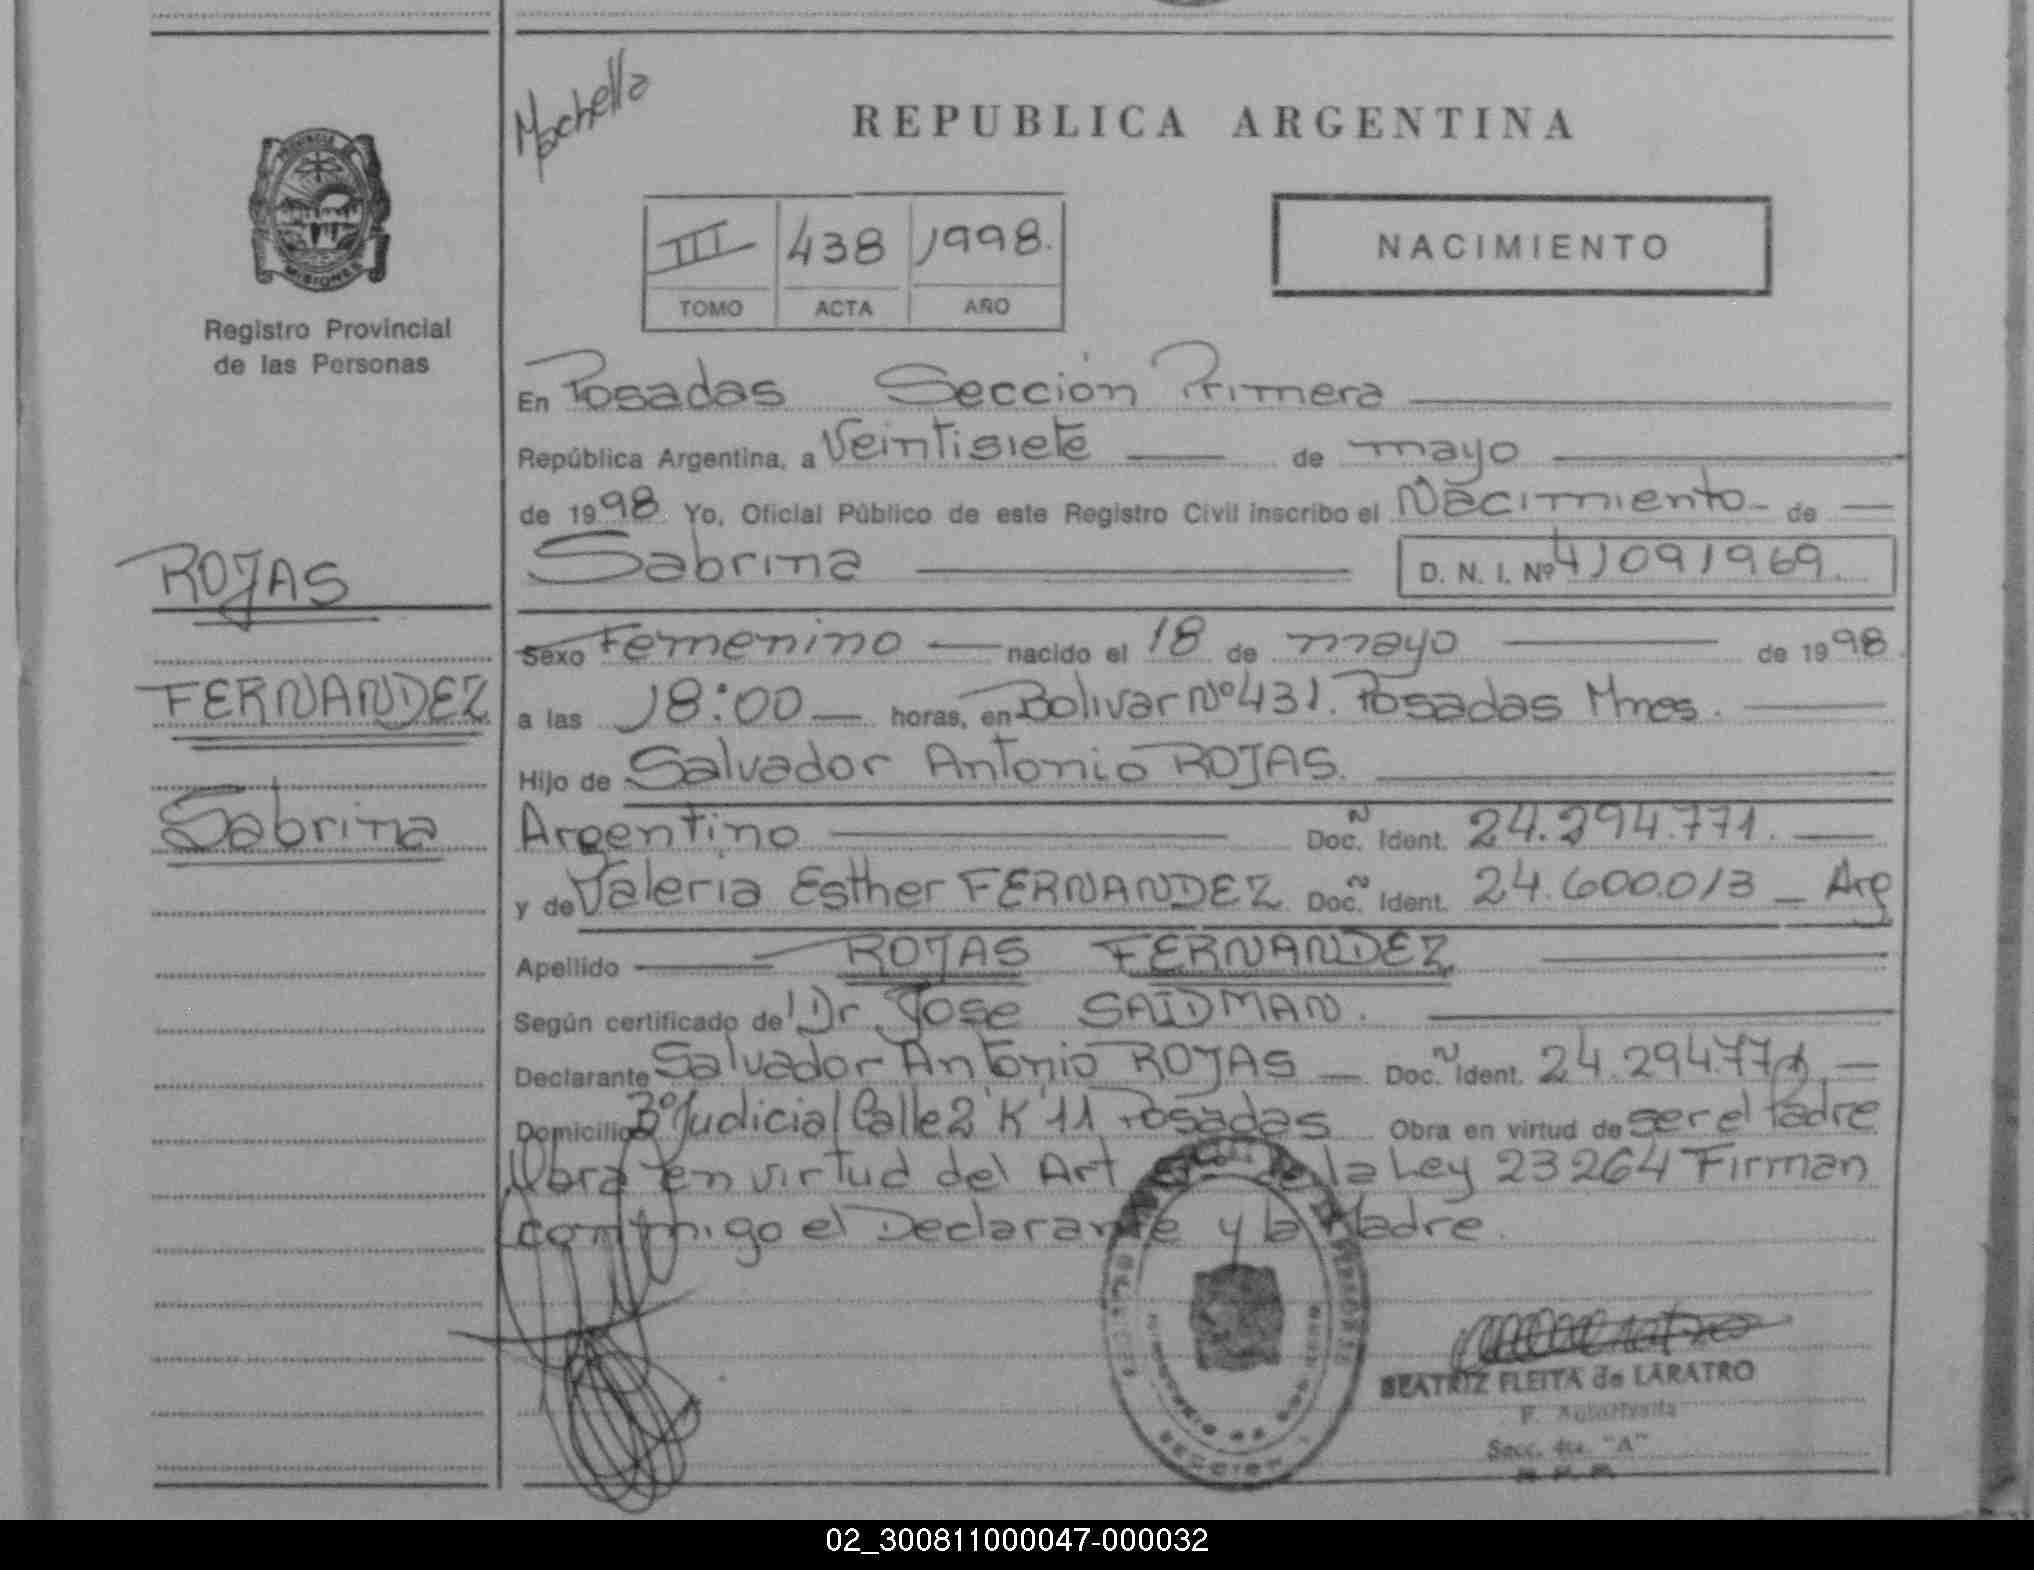 Mochella
REPUBLICA ARGENTINA
III 438 1998.
TOMO ACTA AÑO
NACIMIENTO
MISIONES
Registro Provincial
de las Personas
ROJAS
FERNANDEZ
Sabrina
En Posadas Sección Primera
República Argentina, a Veintisiete de mayo
de 1998 Yo, Oficial Público de este Registro Civil inscribo el Nacimiento - de
Sabrina D. N. I. Nº 41091969.
Sexo Femenino nacido el 18 de mayo de 1998.
a las 18:00 horas, en Bolivar Nº 431. Posadas Mnes.
Hijo de Salvador Antonio ROJAS.
Argentino Doc. Ident. 24.294.771.
y de Valeria Esther FERNANDEZ Doc. Ident. 24.600.013 - Arg
Apellido ROJAS FERNANDEZ
Según certificado de Dr Jose SAIDMAN.
Declarante Salvador Antonio ROJAS Doc. Ident. 24.294.771.
Domicilio Bº Judicial Calle 2 "K" 11 Posadas Obra en virtud de ser el Padre
Obra en virtud del Art de la Ley 23264 Firman
conmigo el Declarante y la Madre.
BEATRIZ FLEITA de LARATRO
Secc. 4ta. "A"
02_300811000047-000032